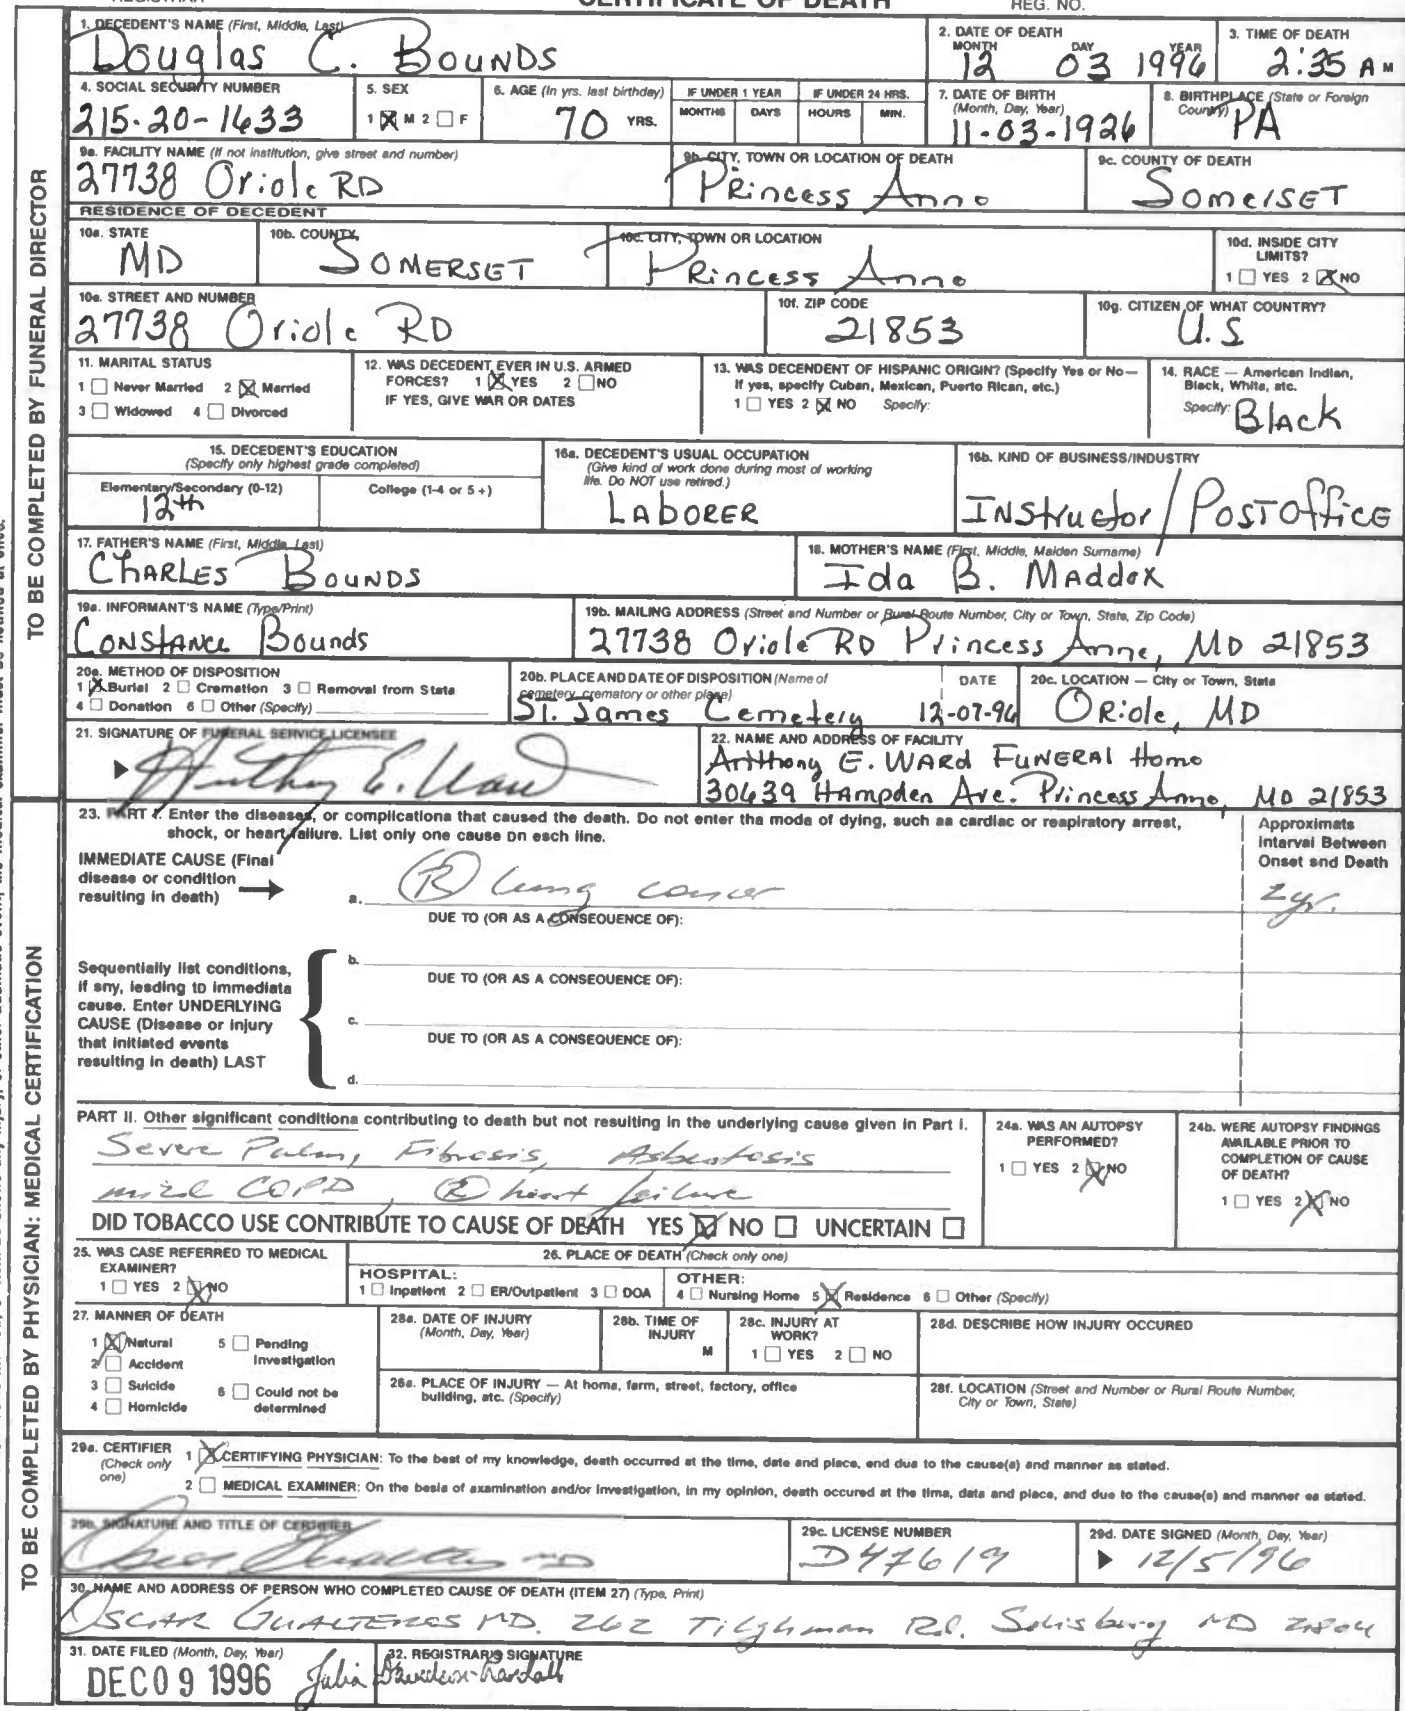 REGISTRAR
CERTIFICATE OF DEATH
REG. NO.
1. DECEDENT'S NAME (First, Middle, Last)
Douglas C. Bounds
2. DATE OF DEATH
MONTH DAY YEAR
12 03 1996
3. TIME OF DEATH
2:35 A M
4. SOCIAL SECURITY NUMBER
215-20-1633
5. SEX
1 ☒ M 2 ☐ F
6. AGE (In yrs. last birthday)
70 YRS.
IF UNDER 1 YEAR
MONTHS DAYS
IF UNDER 24 HRS.
HOURS MIN.
7. DATE OF BIRTH
(Month, Day, Year)
11-03-1926
8. BIRTHPLACE (State or Foreign
Country)
PA
9a. FACILITY NAME (If not institution, give street and number)
27738 Oriole RD
9b. CITY, TOWN OR LOCATION OF DEATH
Princess Anne
9c. COUNTY OF DEATH
Somerset
RESIDENCE OF DECEDENT
10a. STATE
MD
10b. COUNTY
SOMERSET
10c. CITY, TOWN OR LOCATION
Princess Anne
10d. INSIDE CITY
LIMITS?
1 ☐ YES 2 ☒ NO
10e. STREET AND NUMBER
27738 Oriole RD
10f. ZIP CODE
21853
10g. CITIZEN OF WHAT COUNTRY?
U.S
11. MARITAL STATUS
1 ☐ Never Married 2 ☒ Married
3 ☐ Widowed 4 ☐ Divorced
12. WAS DECEDENT EVER IN U.S. ARMED
FORCES? 1 ☒ YES 2 ☐ NO
IF YES, GIVE WAR OR DATES
13. WAS DECENDENT OF HISPANIC ORIGIN? (Specify Yes or No—
If yes, specify Cuban, Mexican, Puerto Rican, etc.)
1 ☐ YES 2 ☒ NO Specify:
14. RACE — American Indian,
Black, White, etc.
Specify: Black
15. DECEDENT'S EDUCATION
(Specify only highest grade completed)
Elementary/Secondary (0-12)
12th
College (1-4 or 5+)
16a. DECEDENT'S USUAL OCCUPATION
(Give kind of work done during most of working
life. Do NOT use retired.)
LABORER
16b. KIND OF BUSINESS/INDUSTRY
INStructor / POSTOffiCE
17. FATHER'S NAME (First, Middle, Last)
CHARLES BOUNDS
18. MOTHER'S NAME (First, Middle, Maiden Surname)
Ida B. Maddox
19a. INFORMANT'S NAME (Type/Print)
CONSTANCE Bounds
19b. MAILING ADDRESS (Street and Number or Rural Route Number, City or Town, State, Zip Code)
27738 Oriole RD Princess Anne, MD 21853
20a. METHOD OF DISPOSITION
1 ☒ Burial 2 ☐ Cremation 3 ☐ Removal from State
4 ☐ Donation 6 ☐ Other (Specify)
20b. PLACE AND DATE OF DISPOSITION (Name of
cemetery, crematory or other place)
St. James Cemetery
DATE
12-07-96
20c. LOCATION — City or Town, State
ORiole, MD
21. SIGNATURE OF FUNERAL SERVICE LICENSEE
Anthony E. Ward
22. NAME AND ADDRESS OF FACILITY
Anthony E. WARD FUNERAL Home
30639 HAmpden Ave. Princess Anne, MD 21853
23. PART I. Enter the diseases, or complications that caused the death. Do not enter the mode of dying, such as cardiac or respiratory arrest,
shock, or heart failure. List only one cause on each line.
Approximate
Interval Between
Onset and Death
IMMEDIATE CAUSE (Final
disease or condition
resulting in death)
a. Ⓡ lung cancer
2 yr.
DUE TO (OR AS A CONSEQUENCE OF):
Sequentially list conditions,
if any, leading to immediate
cause. Enter UNDERLYING
CAUSE (Disease or injury
that initiated events
resulting in death) LAST
b.
DUE TO (OR AS A CONSEQUENCE OF):
c.
DUE TO (OR AS A CONSEQUENCE OF):
d.
PART II. Other significant conditions contributing to death but not resulting in the underlying cause given in Part I.
Severe Pulm, Fibrosis, Asbestosis
mild COPD, Ⓡ heart failure
DID TOBACCO USE CONTRIBUTE TO CAUSE OF DEATH YES ☒ NO ☐ UNCERTAIN ☐
24a. WAS AN AUTOPSY
PERFORMED?
1 ☐ YES 2 ☒ NO
24b. WERE AUTOPSY FINDINGS
AVAILABLE PRIOR TO
COMPLETION OF CAUSE
OF DEATH?
1 ☐ YES 2 ☒ NO
25. WAS CASE REFERRED TO MEDICAL
EXAMINER?
1 ☐ YES 2 ☒ NO
26. PLACE OF DEATH (Check only one)
HOSPITAL:
1 ☐ Inpatient 2 ☐ ER/Outpatient 3 ☐ DOA
OTHER:
4 ☐ Nursing Home 5 ☒ Residence 6 ☐ Other (Specify)
27. MANNER OF DEATH
1 ☒ Natural 5 ☐ Pending
Investigation
2 ☐ Accident
3 ☐ Suicide 6 ☐ Could not be
determined
4 ☐ Homicide
28a. DATE OF INJURY
(Month, Day, Year)
28b. TIME OF
INJURY
M
28c. INJURY AT
WORK?
1 ☐ YES 2 ☐ NO
28d. DESCRIBE HOW INJURY OCCURED
28e. PLACE OF INJURY — At home, farm, street, factory, office
building, etc. (Specify)
28f. LOCATION (Street and Number or Rural Route Number,
City or Town, State)
29a. CERTIFIER
(Check only
one)
1 ☒ CERTIFYING PHYSICIAN: To the best of my knowledge, death occurred at the time, date and place, and due to the cause(s) and manner as stated.
2 ☐ MEDICAL EXAMINER: On the basis of examination and/or investigation, in my opinion, death occured at the time, date and place, and due to the cause(s) and manner as stated.
29b. SIGNATURE AND TITLE OF CERTIFIER
MD
29c. LICENSE NUMBER
D47619
29d. DATE SIGNED (Month, Day, Year)
12/5/96
30. NAME AND ADDRESS OF PERSON WHO COMPLETED CAUSE OF DEATH (ITEM 27) (Type, Print)
OSCAR GUALTEROS MD. 262 Tilghman Rd. Salisbury MD 21804
31. DATE FILED (Month, Day, Year)
DEC 09 1996
32. REGISTRAR'S SIGNATURE
Julia
TO BE COMPLETED BY FUNERAL DIRECTOR
TO BE COMPLETED BY PHYSICIAN: MEDICAL CERTIFICATION